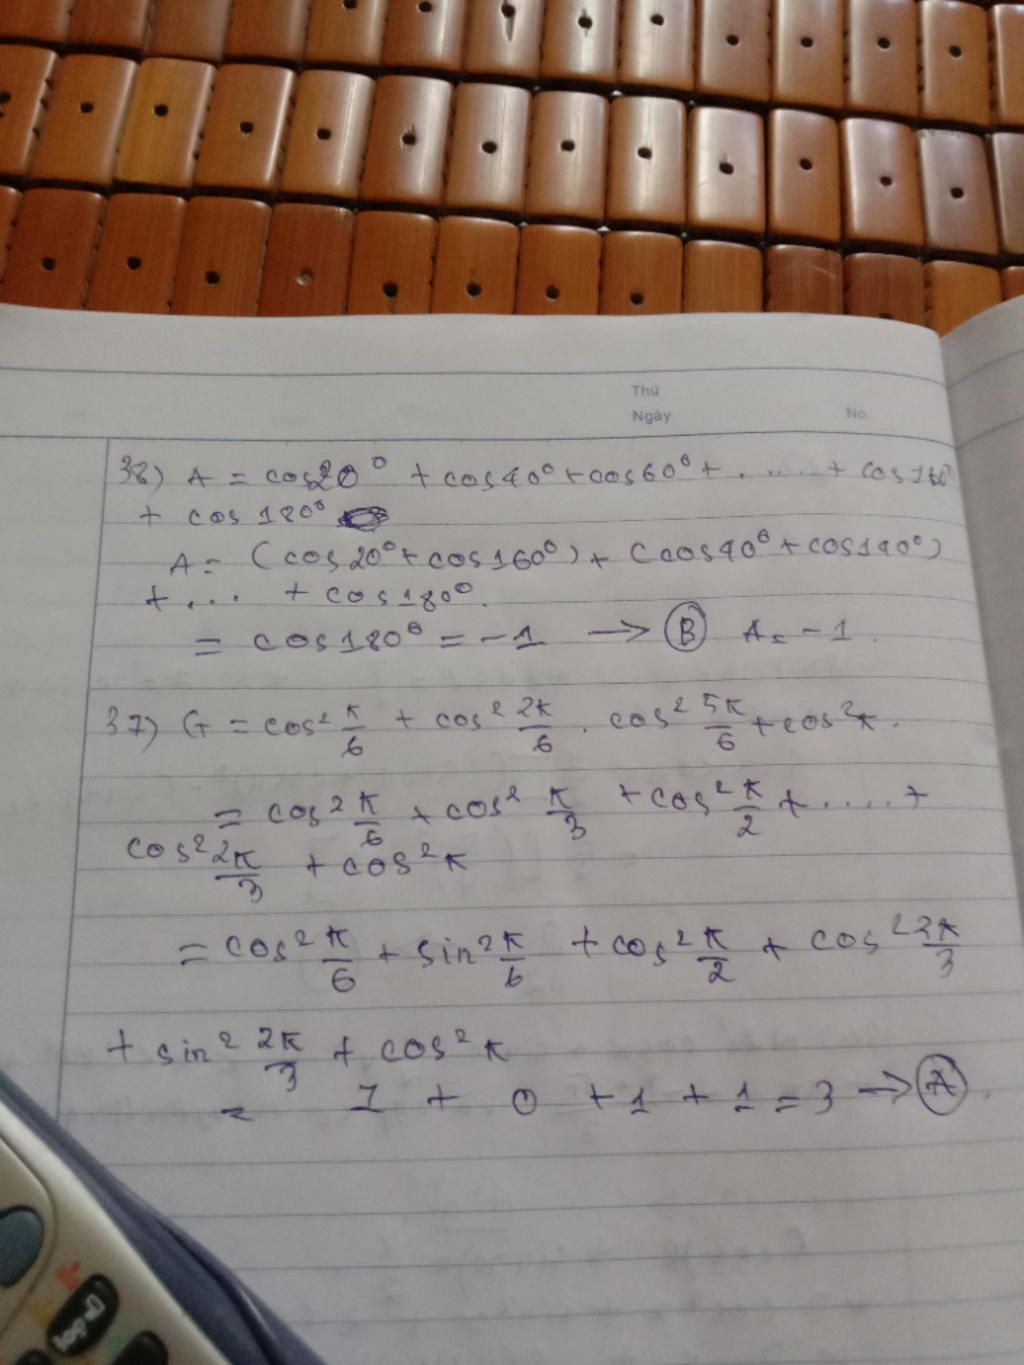 Thứ
Ngày No.
38) A = cos20° + cos40° + cos60° + ..... + cos160°
+ cos180°
A = (cos20° + cos160°) + (cos40° + cos140°)
+ ... + cos180°.
= cos180° = -1 → Ⓑ A = -1.
37) G = cos² π/6 + cos² 2π/6 . cos² 5π/6 + cos²π.
= cos² π/6 + cos² π/3 + cos² π/2 + ..... +
cos² 2π/3 + cos²π
= cos² π/6 + sin² π/6 + cos² π/2 + cos² 2π/3
+ sin² 2π/3 + cos²π
= 1 + 0 + 1 + 1 = 3 → Ⓐ.